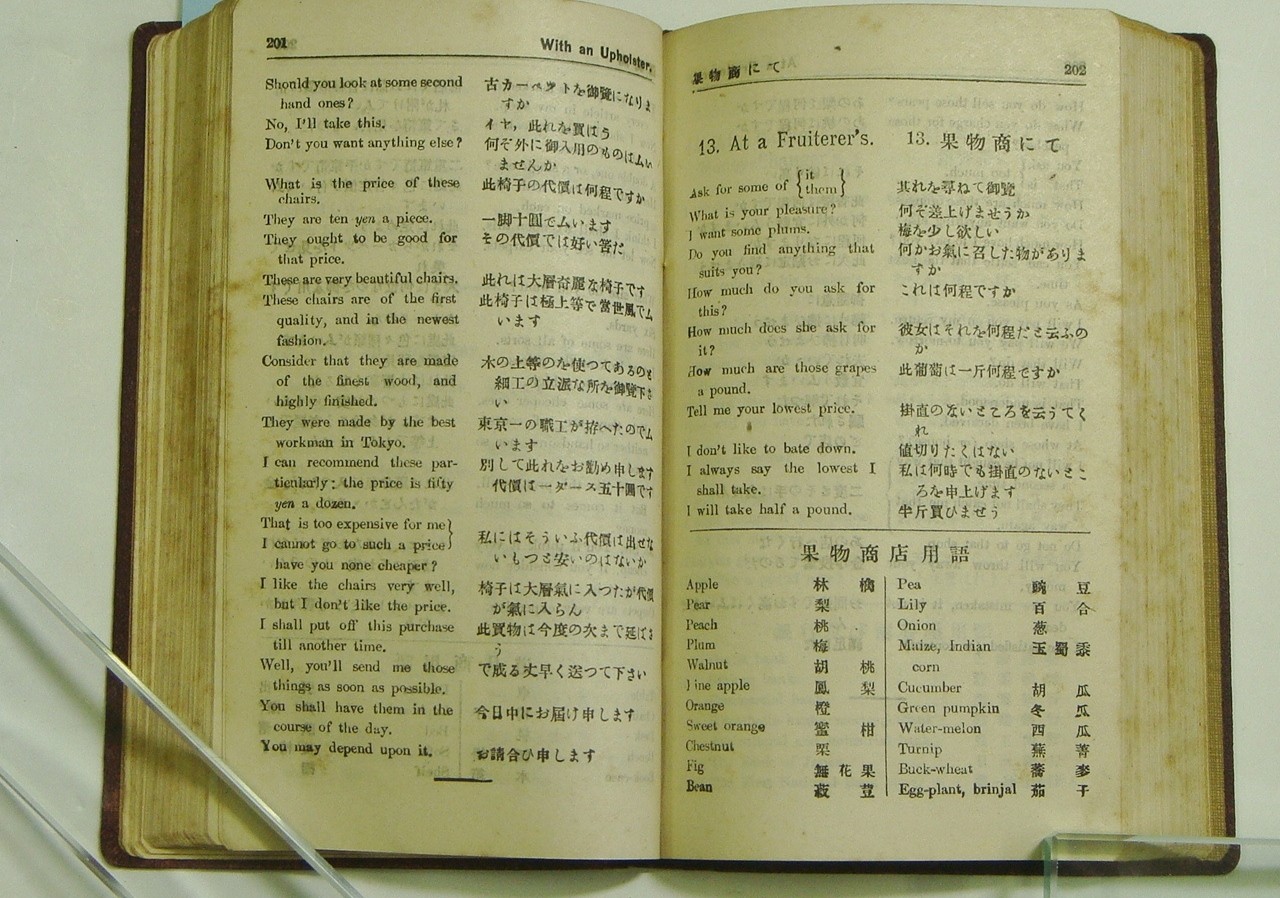 201
With an Upholster.
Should you look at some second
hand ones?
No, I'll take this.
Don't you want anything else?
What is the price of these
chairs.
They are ten yen a piece.
They ought to be good for
that price.
These are very beautiful chairs.
These chairs are of the first
quality, and in the newest
fashion.
Consider that they are made
of the finest wood, and
highly finished.
They were made by the best
workman in Tokyo.
I can recommend these par-
ticularly: the price is fifty
yen a dozen.
That is too expensive for me}
I cannot go to such a price}
have you none cheaper?
I like the chairs very well,
but I don't like the price.
I shall put off this purchase
till another time.
Well, you'll send me those
things as soon as possible.
You shall have them in the
course of the day.
You may depend upon it.
古カーペットを御覽になりま
すか
イヤ,此れを買はう
何ぞ外に御入用のものはムい
ませんか
此椅子の代價は何程ですか
一脚十圓でムいます
その代價では好い筈だ
此れは大層奇麗な椅子です
此椅子は極上等で當世風でム
います
木の上等のを使つてあるのと
細工の立派な所を御覽下さ
い
東京一の職工が拵へたのでム
います
別して此れをお勸め申します
代價は一ダース五十圓です
私にはそういふ代價は出せな
いもつと安いのはないか
椅子は大層氣に入つたが代價
が氣に入らん
此買物は今度の次まで延ばさ
う
で成る丈早く送つて下さい
今日中にお届け申します
お請合ひ申します
果物商にて
202
13. At a Fruiterer's.
13. 果物商にて
Ask for some of {it
them}
What is your pleasure?
I want some plums.
Do you find anything that
suits you?
How much do you ask for
this?
How much does she ask for
it?
How much are those grapes
a pound.
Tell me your lowest price.
I don't like to bate down.
I always say the lowest I
shall take.
I will take half a pound.
其れを尋ねて御覽
何ぞ差上げませうか
梅を少し欲しい
何かお氣に召した物がありま
すか
これは何程ですか
彼女はそれを何程だと云ふの
か
此葡萄は一斤何程ですか
掛直のないところを云うてく
れ
値切りたくはない
私は何時でも掛直のないとこ
ろを申上げます
半斤買ひませう
果物商店用語
Apple 林檎
Pear 梨
Peach 桃
Plum 梅
Walnut 胡桃
Pine apple 鳳梨
Orange 橙
Sweet orange 蜜柑
Chestnut 栗
Fig 無花果
Bean 荳
Pea 豌豆
Lily 百合
Onion 葱
Maize, Indian 玉蜀黍
corn
Cucumber 胡瓜
Green pumpkin 冬瓜
Water-melon 西瓜
Turnip 蕪菁
Buck-wheat 蕎麥
Egg-plant, brinjal 茄子